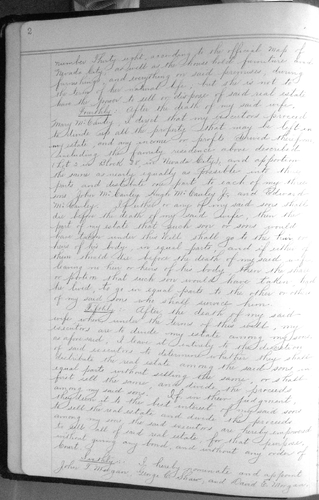 2
number Thirty eight, according to the official Map of
Nevada City, as well as the household furniture and
furnishing and everything on said premises, during
the term of her natural life, but she is not to
have the power to sell or dispose of said real estate
Fourthly: After the death of my said wife,
Mary McCauley, I direct that my executors proceed
to divide up all the property that may be left in
my estate, and any income or profit
including the family residence above described
Lot 2 in Block 38 in Nevada City, and apportion
the same as nearly equally as possible into three
parts and distribute one part to each of my three
sons John McCauley, Hugh McCauley Jr. and
McCauley. If either or any of my said sons shall
die before the death of my said wife, then the
part of my estate that such son or sons would
have taken under this Will shall go to the heir or
heirs of his body, in equal parts, and if either of
them should die before the death of my said wife
leaving no heir or heirs of his body, then the share
or portion that such son would have taken had
he lived, to go in equal parts to the other or others
of my said sons who shall survive him.
Fifthly: After the death of my said
wife when under the terms of this will, my
executors are to divide my estate among my sons
as aforesaid, I leave it entirely to the discretion
of said executors to determine whether they shall
distribute the real estate among the said sons in
equal parts without selling the same, or shall
first sell the same, and divide the proceeds
among my said sons. If in their judgment
they deem it to the best interest of my said sons
to sell the real estate and divide the proceeds
among my sons the said executors are hereby empowered
to sell all of said real estate, for that purpose,
without giving any bond, and without any order of
Court.
Sixthly: I hereby nominate and appoint
John T. Morgan, George C. Shaw, and David E. Morgan